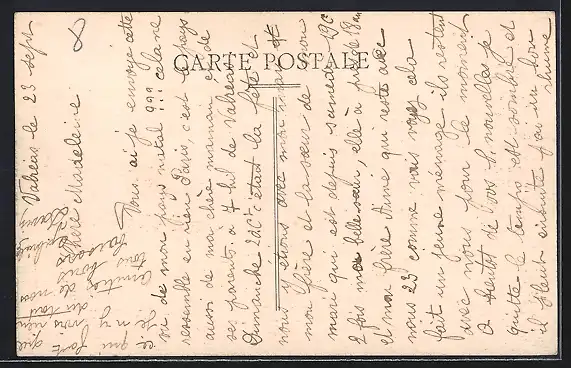 CARTE POSTALE
Valréas le 23 sept
Chère Madeleine
Vous ai je envoyé cette
vue de mon pays natal ??? !!! cela ne
ressemble en rien Paris, c'est le pays
aussi de ma chère maman et de
ses parents à 7 kil de Valréas
Dimanche 20 ct c'était la fête et
nous y étions avec mon mari et
mon frère et la sœur de mon
mari qui est depuis samedi 19 ct
2 fois ma belle sœur, elle a fugé 18 ans
et mon frère Aimé qui reste avec
nous 25 comme vous voyez cela
fait un jeune ménage ils restent
avec nous pour le moment
A bientôt de vos b. nouvelles je
quitte le temps est sombre et
il pleut ensuite j'ai un bon
rhume
ce qui fait que
je m'y vois rien
du tout
amitiés de nous
tous bons
baisers